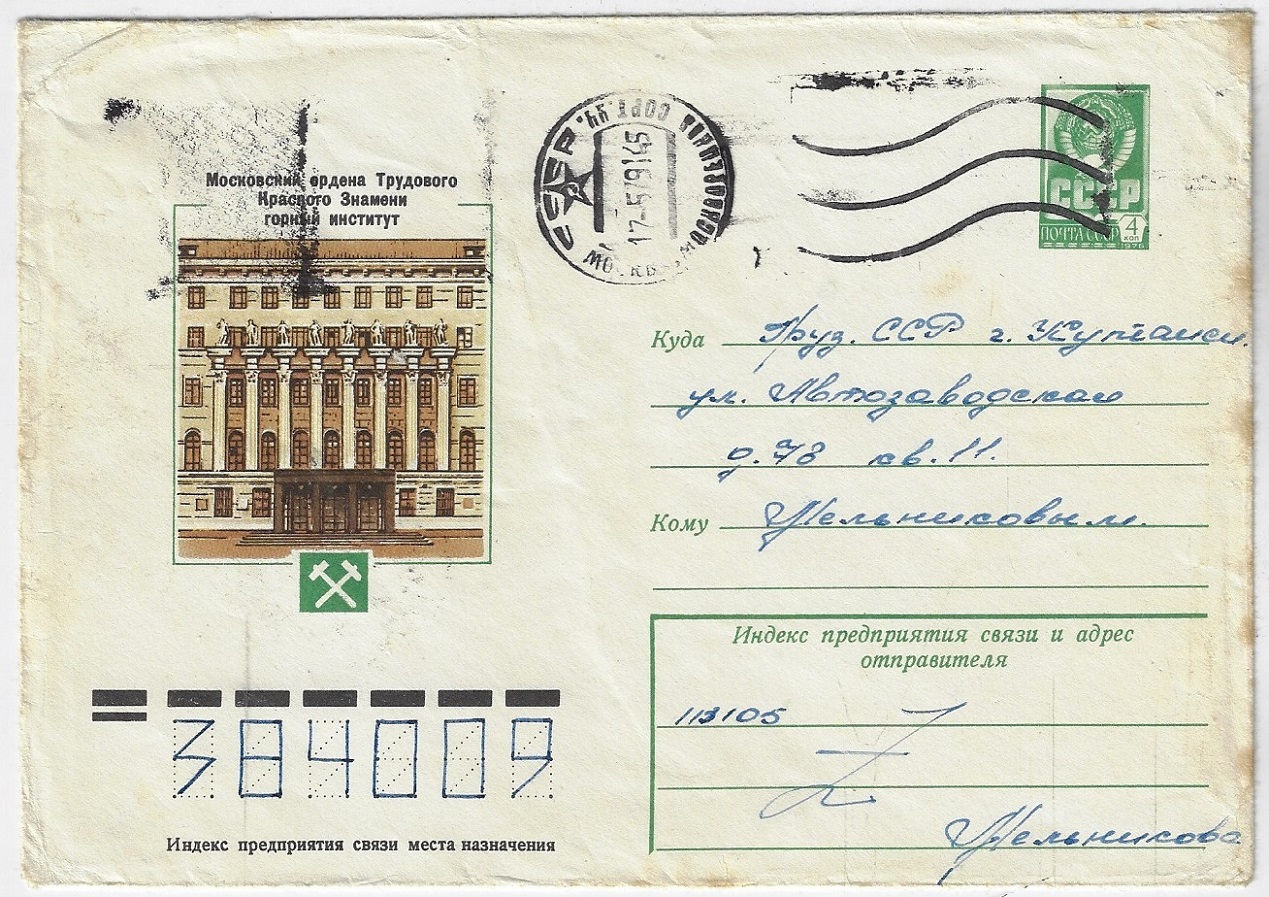 Московский ордена Трудового
Красного Знамени
горный институт
СССР
МОСКВА
17-579145
СССР
ПОЧТА СССР 4 КОП
1976
Куда Груз. ССР г. Кутаиси.
ул. Автозаводская
д. 78 кв. 11.
Кому Мельниковым.
Индекс предприятия связи и адрес
отправителя
113105
Мельникова
384009
Индекс предприятия связи места назначения